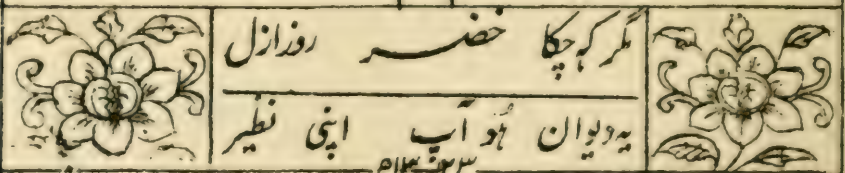 مگر کہہ چکا خضر روز ازل
یہ دیوان ہو آپ اپنی نظیر
۱۳۲۳ھ